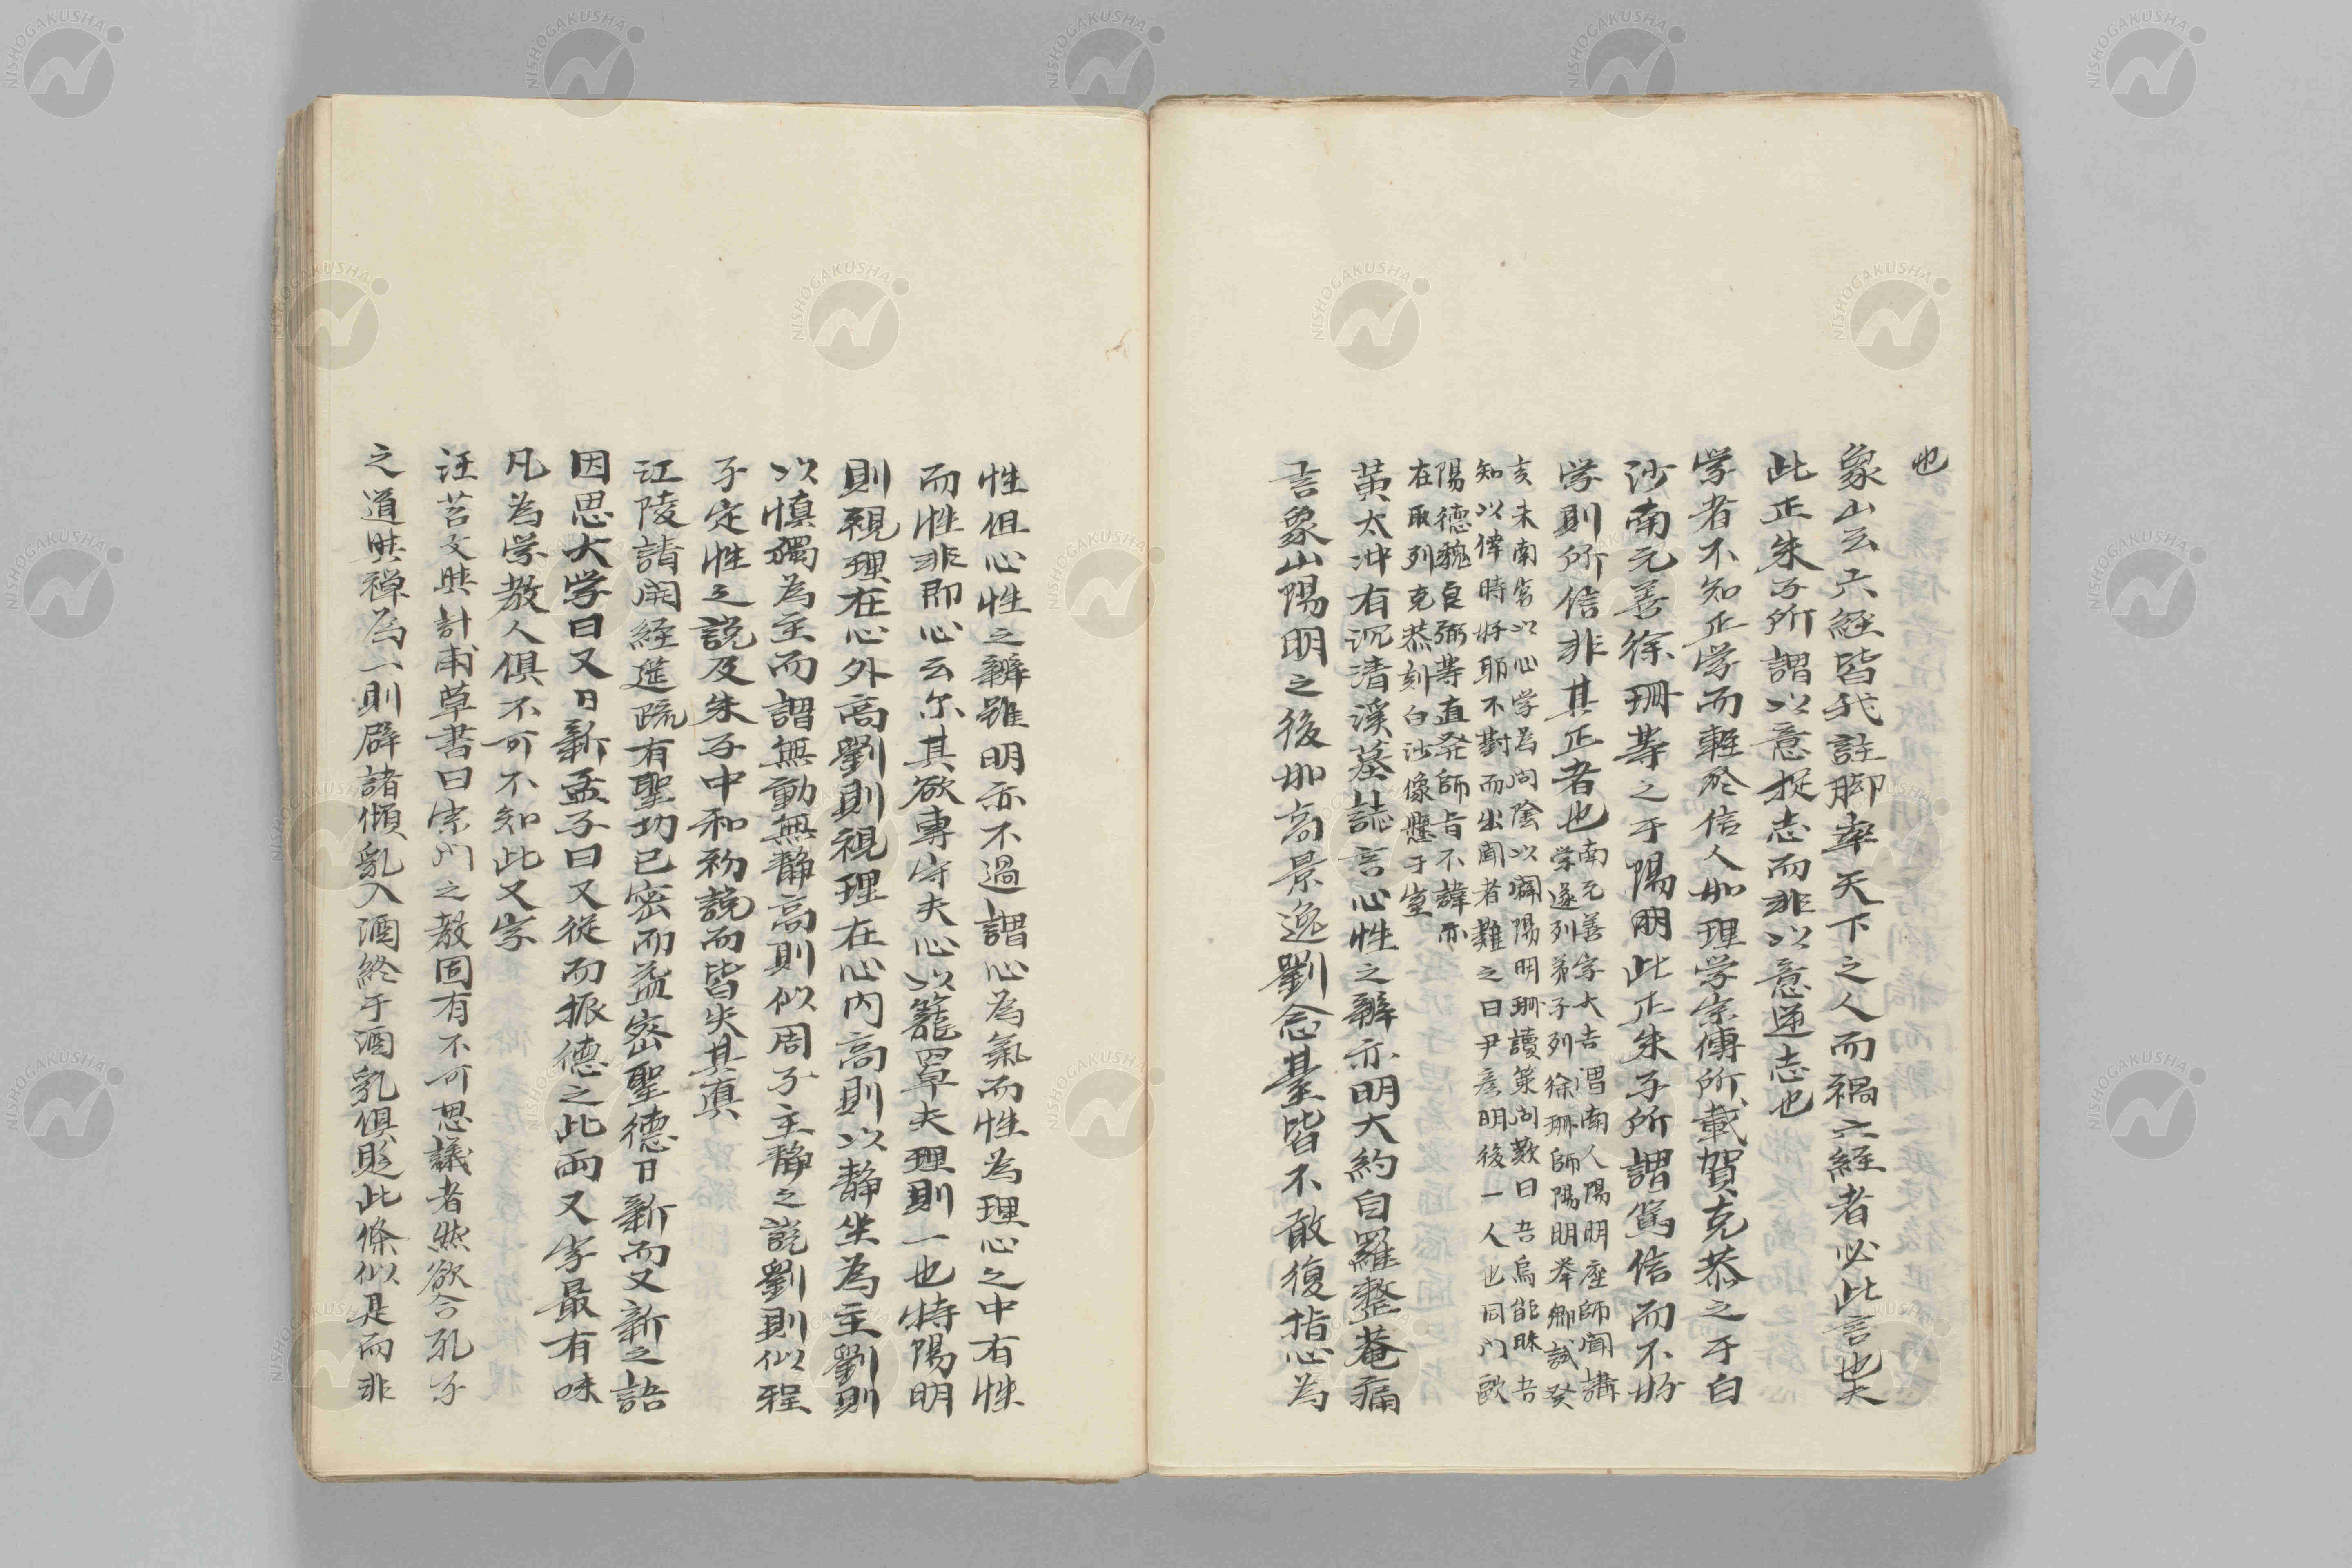 也
象山云六経皆我註脚率天下之人而禍六経者必此言也夫
此正朱子所謂以意捉志而非以意逆志也
学者不知正学而輕於信人如理学宗傳所載賀克恭之于白
沙南元善徐珊等之于陽明此正朱子所謂篤信而不好
学則所信非其正者也
南元善字大吉渭南人陽明座師聞講
学遂列弟子列徐珊師陽明挙郷試癸
亥未南宮以心学為問陰以闢陽明珊讀策問歎曰吾烏能昧吾
知以倖時好耶不對而出聞者難之曰尹彦明後一人也同門歐
陽德魏良弼等直発師旨不諱亦
在取列克恭刻白沙像懸于室
黄太冲有沉清溪墓誌言心性之辨亦明大約自羅整菴痛
言象山陽明之後如高景逸劉念䑓皆不敢復指心為
性但心性之辨雖明亦不過謂心為氣而性為理心之中有性
而性非即心云尓其欲專守夫心以籠罩夫理則一也特陽明
則視理在心外高劉則視理在心内高則以静坐為主劉則
以慎獨為主而謂無動無静高則似周子主静之説劉則似程
子定性之説及朱子中和初説而皆失其真
江陵請開經進疏有聖功已密而益密聖德日新而又新之語
因思大学曰又日新孟子曰又従而振德之此両又字最有味
凡為学教人俱不可不知此又字
汪苕文與計甫草書曰宗門之教固有不可思議者然欲合孔子
之道與禅為一則辟諸傾乳入酒終于酒乳俱敗此條似是而非
NISHOGAKUSHA